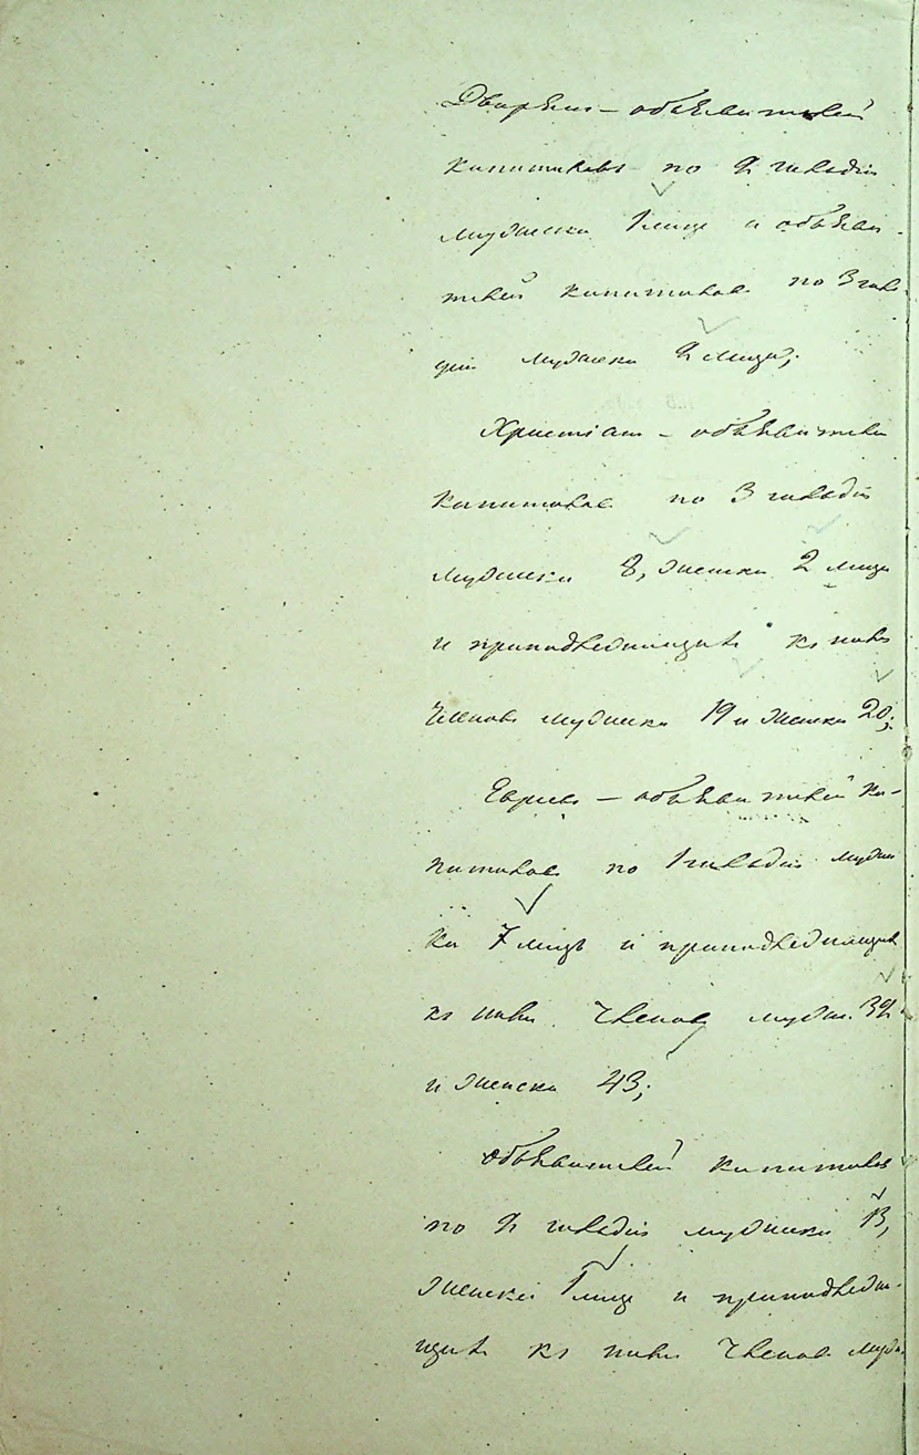 Дворянъ – объявителей
капиталовъ по 2 гильдіи
мужеска 1 лице и объяви-
телей капиталовъ по 3 гиль-
діи мужеска 2 лица;
Христіанъ – объявители
капиталовъ по 3 гильдіи
мужеска 8, женска 2 лица
и принадлежащихъ къ нимъ
членовъ мужеска 19 и женска 20;
Евреевъ – объявителей ка-
питаловъ по 1 гильдіи мужес
ка 7 лицъ и принадлежащихъ
къ нимъ членовъ муж. 32
и женска 43;
Объявителей капиталовъ
по 2 гильдіи мужеска 13,
женска 1 лице и принадлежа-
щихъ къ нимъ членовъ муж.